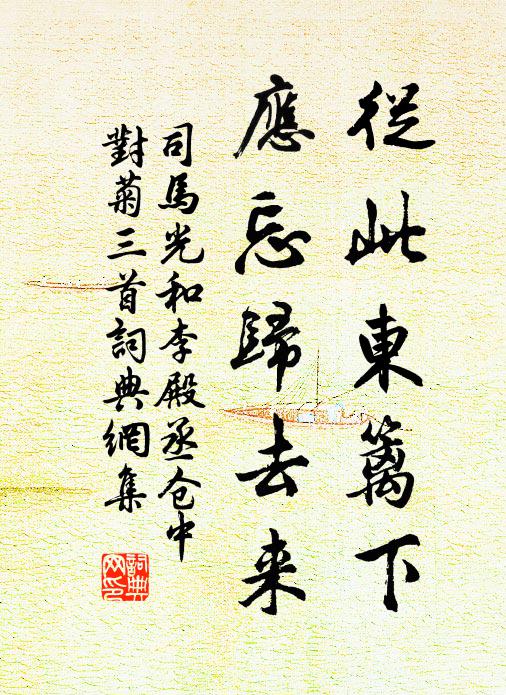 從此東篱下
應忘歸去来
司馬光和李殿丞仓中
對菊三首詞典網集
詞典
网印